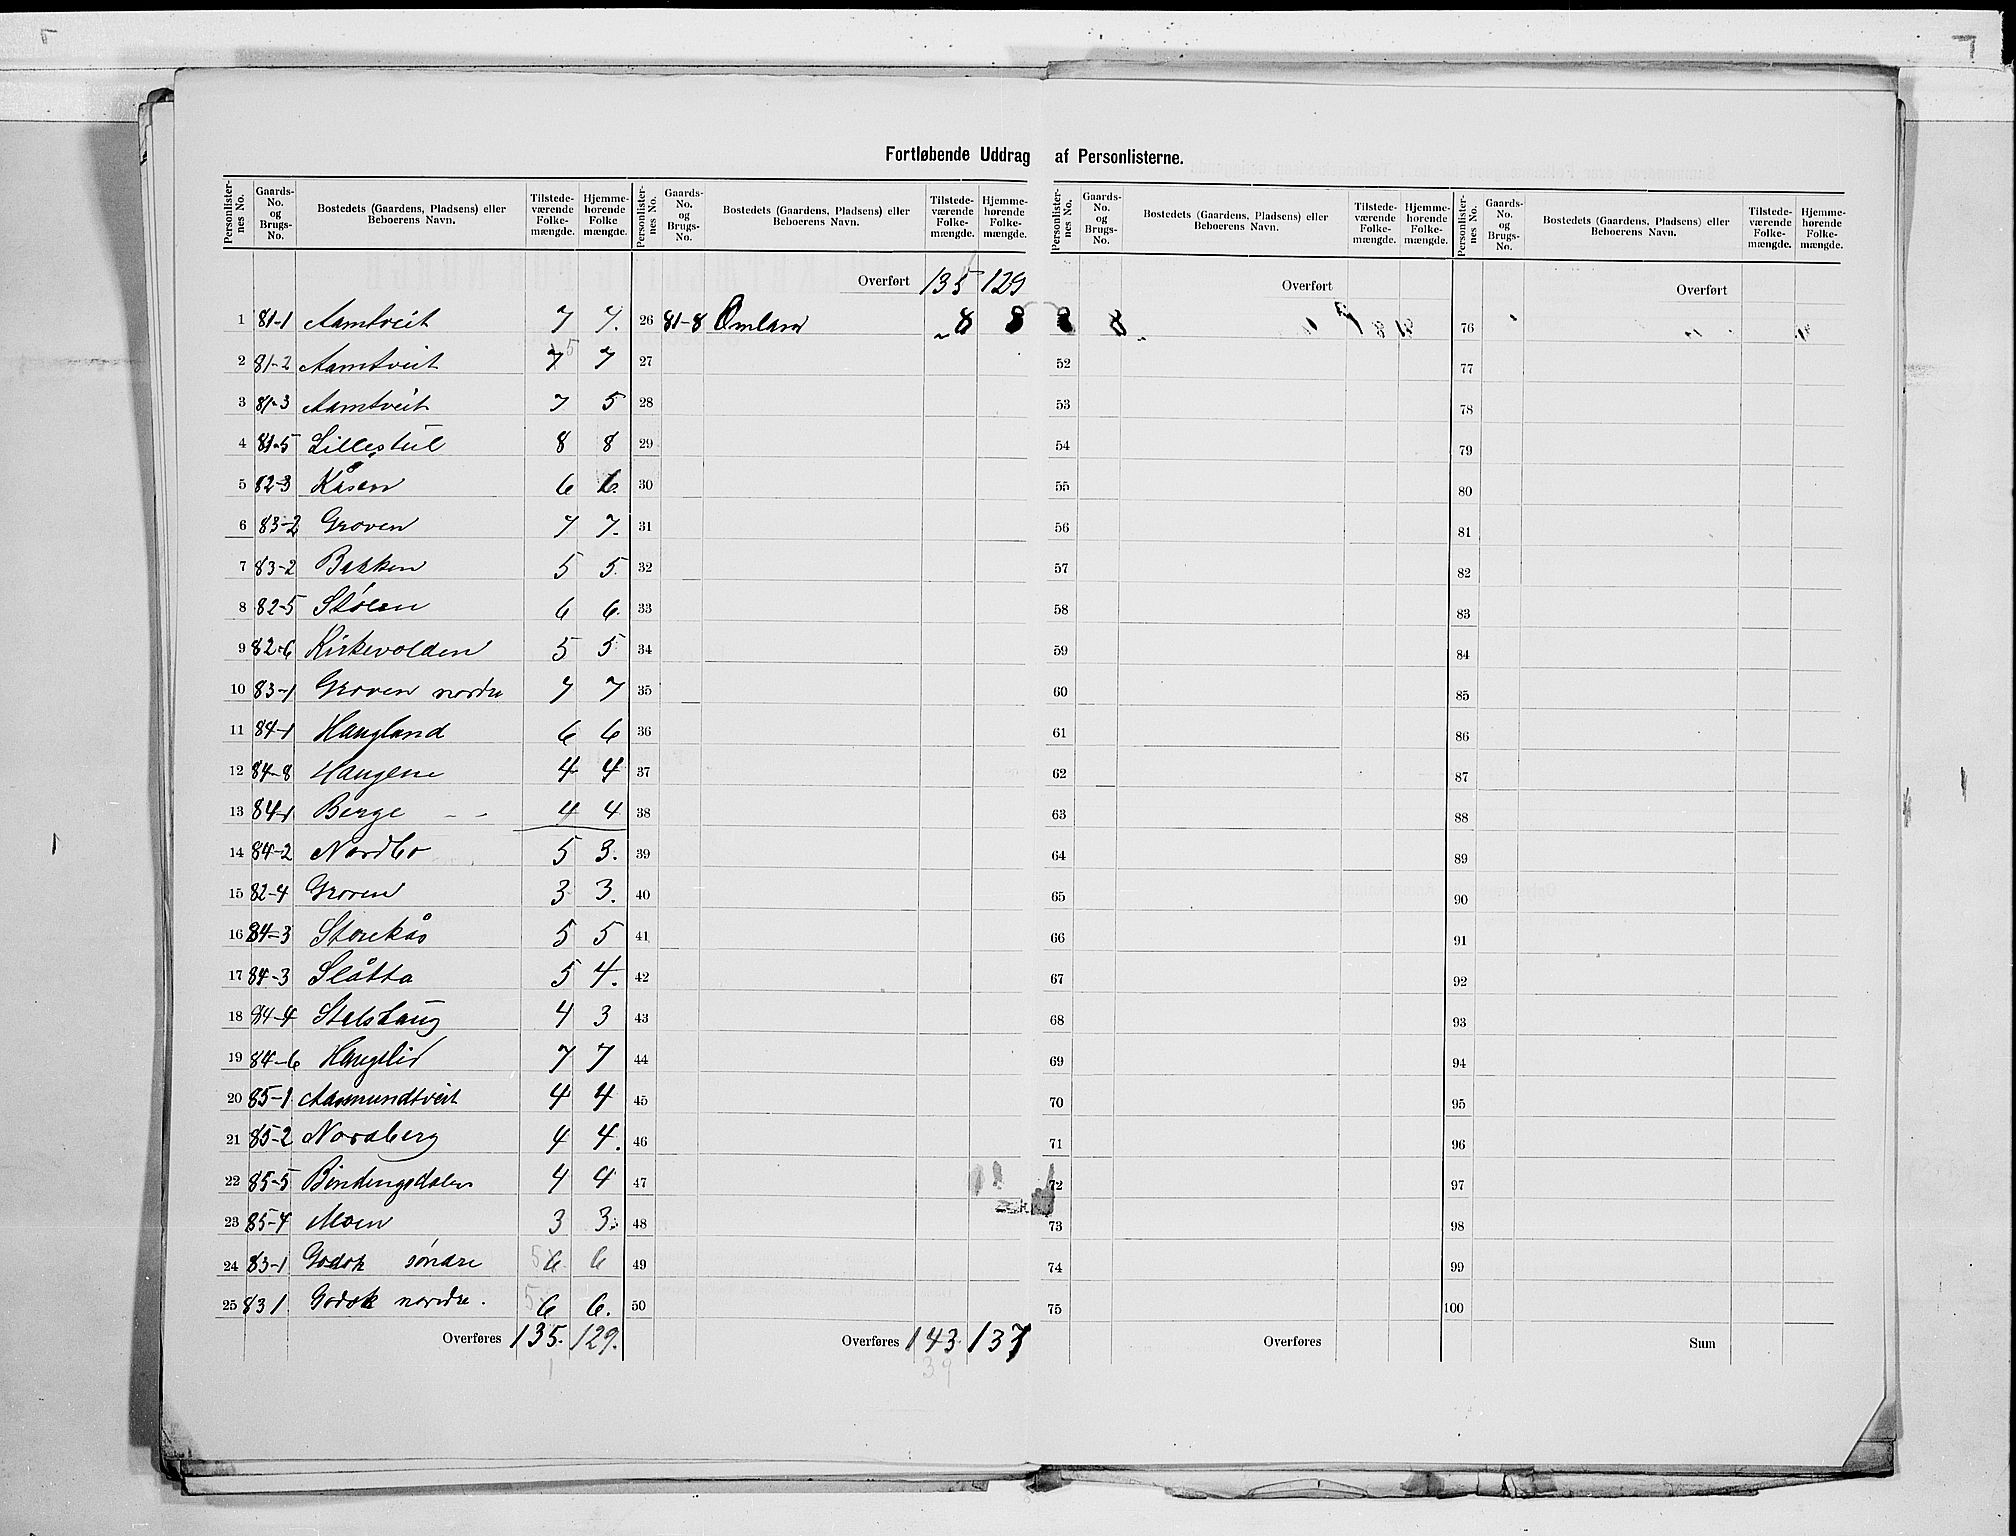 Fortløbende Uddrag af Personlisterne.
Personlisternes No. Gaards-No. og Brugs-No. Bostedets (Gaardens, Pladsens) eller Beboerens Navn. Tilstedeværende Folkemængde. Hjemmehørende Folkemængde.
1 81-1 Aamtveit 7 7.
2 81-2 Aamtveit 7 5 7
3 81-3 Aamtveit 7 5
4 81-5 Lillestul 8 8
5 82-3 Kåsen 6 6.
6 83-2 Groven 7 7.
7 83-2 Bakken 5 5.
8 82-5 Stølen 6 6.
9 82-6 Kirkevolden 5 5
10 83-1 Groven nordre 7 7
11 84-1 Haugland 6 6
12 84-8 Haugene 4 4
13 84-1 Berge - - 4 4
14 84-2 Nordbo 5 3.
15 82-4 Groven 3 3.
16 84-3 Storekås 5 5
17 84-3 Slåtta 5 4.
18 84-4 4 3
19 84-6 Haugelid 7 7
20 85-1 Aasmundtveit 4 4
21 85-2 Nordberg 4 4.
22 85-5 Bindingsdalen 4 4
23 85-4 Moen 3 3.
24 83-1 Godok søndre 5 6 6
25 83 1 Godok nordre. 5 6 6.
Overføres 135. 129.
1
Personlisternes No. Gaards-No. og Brugs-No. Bostedets (Gaardens, Pladsens) eller Beboerens Navn. Tilstedeværende Folkemængde. Hjemmehørende Folkemængde.
Overført 135 129
26 81-8 Omland 8 8
27
28
29
30
31
32
33
34
35
36
37
38
39
40
41
42
43
44
45
46
47
48
49
50
Overføres 143. 137
39
Personlisternes No. Gaards-No. og Brugs-No. Bostedets (Gaardens, Pladsens) eller Beboerens Navn. Tilstedeværende Folkemængde. Hjemmehørende Folkemængde.
Overført
52
53
54
55
56
57
58
59
60
61
62
63
64
65
66
67
68
69
70
71
72
73
74
75
Overføres
Personlisternes No. Gaards-No. og Brugs-No. Bostedets (Gaardens, Pladsens) eller Beboerens Navn. Tilstedeværende Folkemængde. Hjemmehørende Folkemængde.
Overført
76
77
78
79
80
81
82
83
84
85
86
87
88
89
90
91
92
93
94
95
96
97
98
99
100
Sum